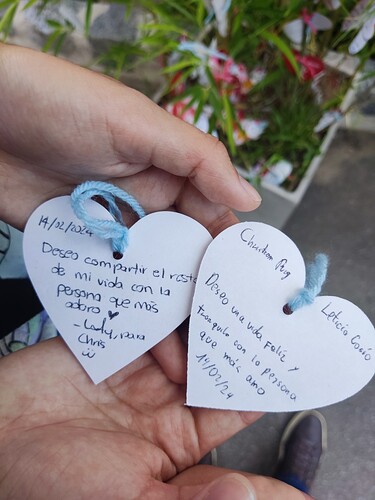 14/02/2024
Deseo compartir el resto
de mi vida con la
persona que más
adoro ♥
- Lady, para
Chris
Christian Puig
Leticia Cosió
Deseo una vida Feliz y
tranquila con la persona
que más amo
14/02/24